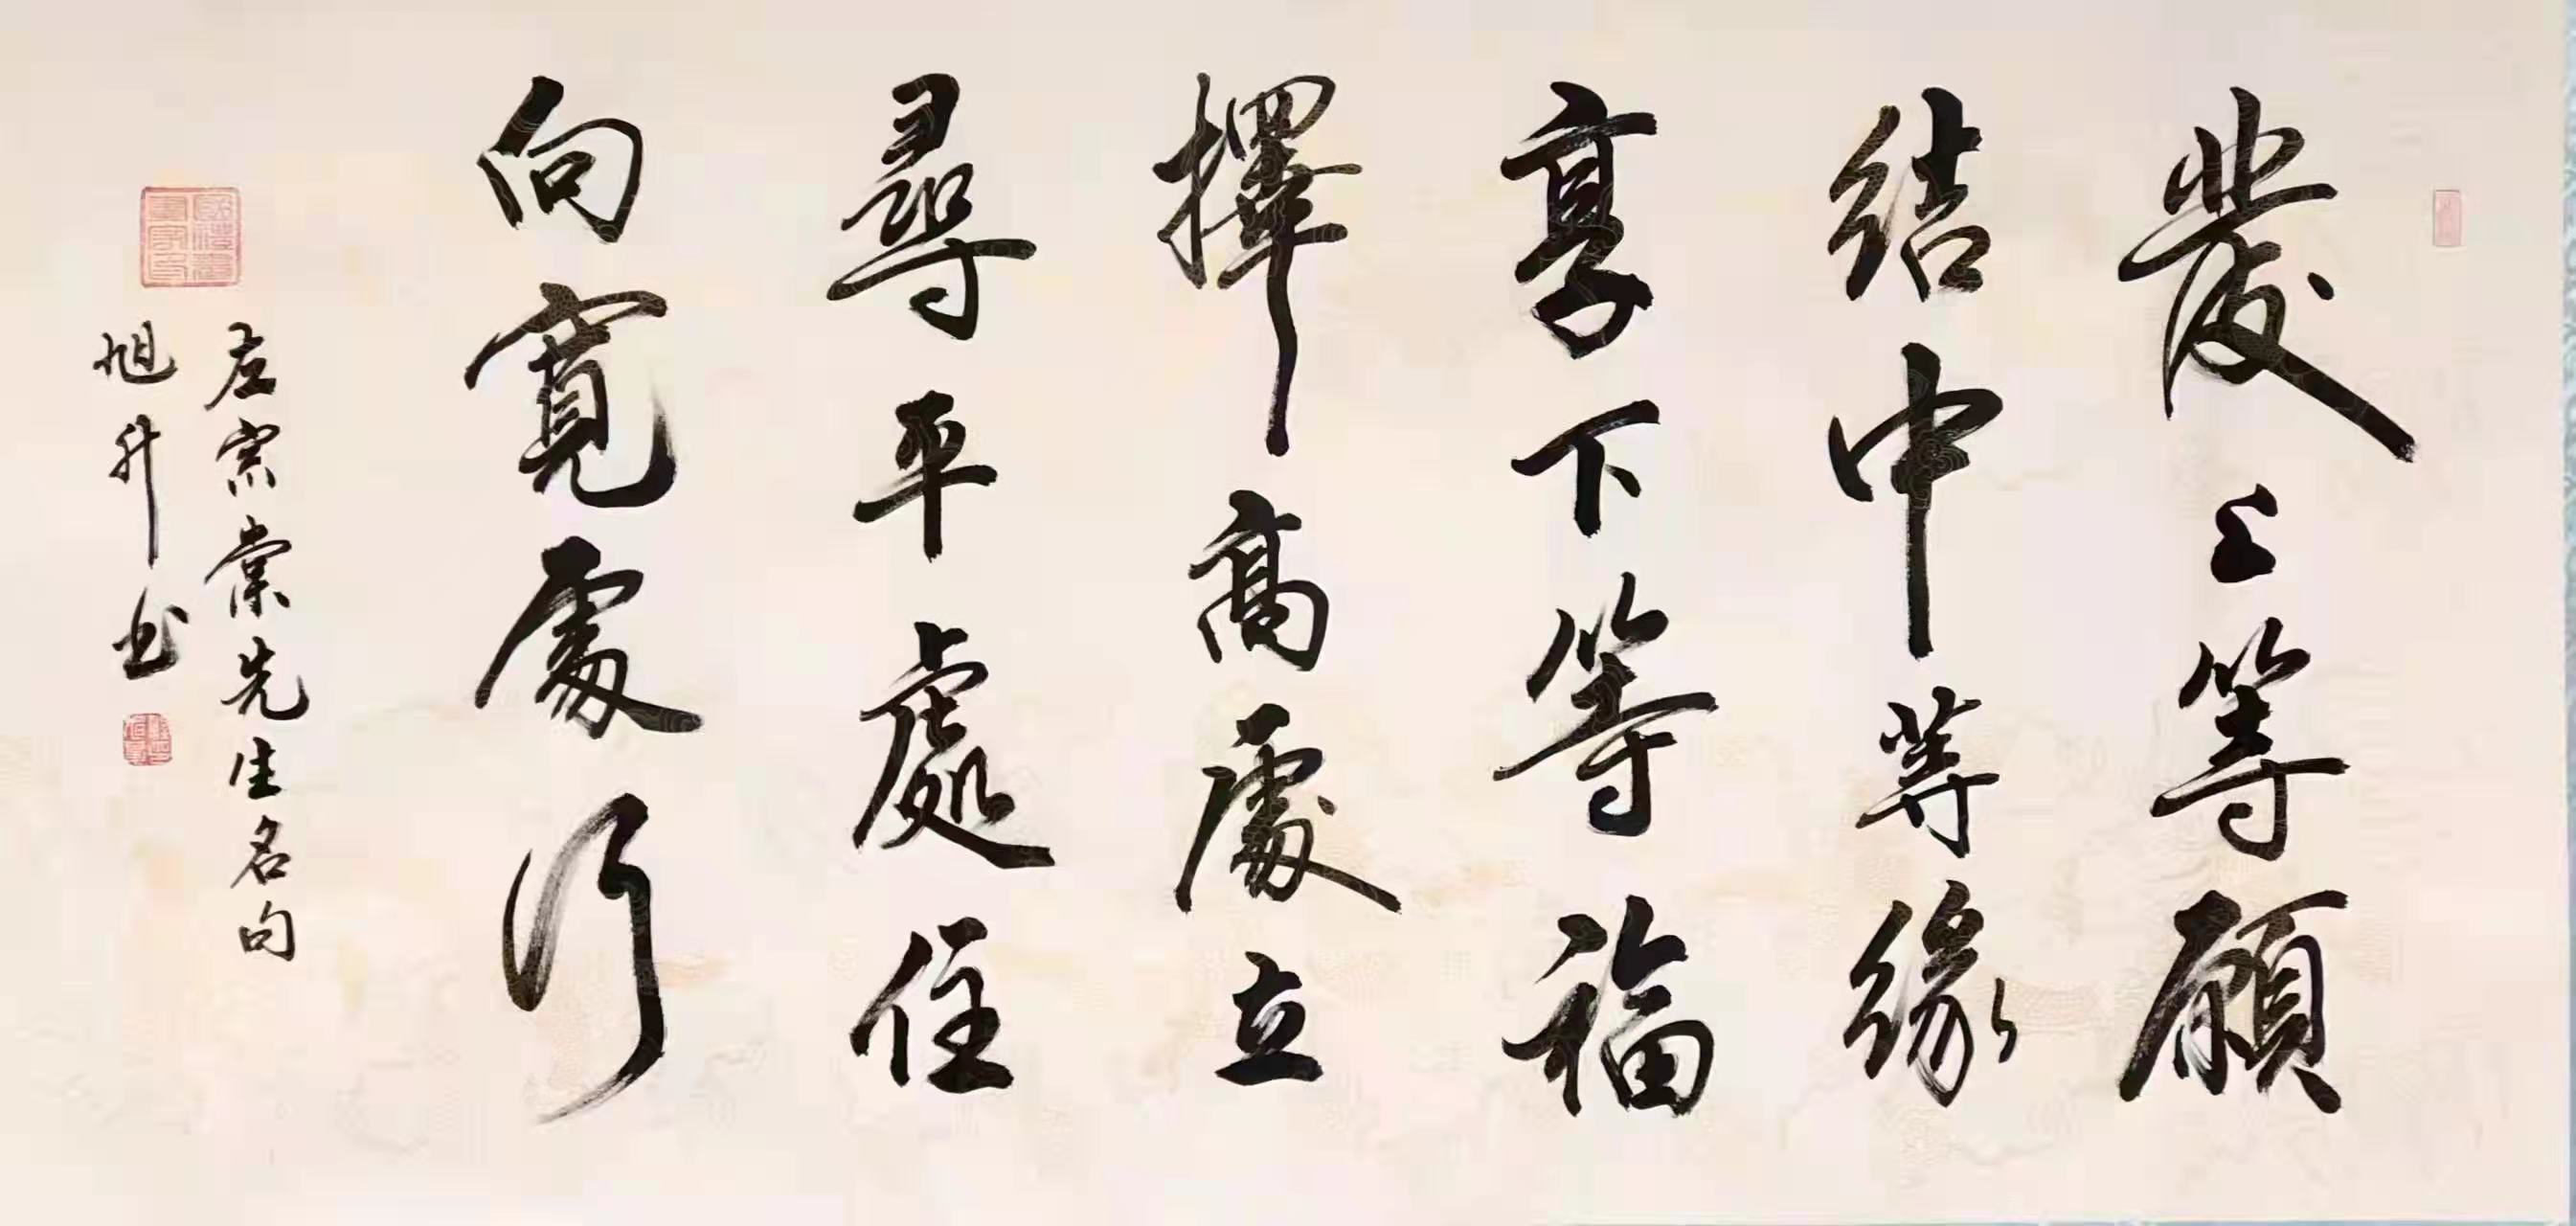 發上等願
結中等緣
享下等福
擇高處立
尋平處住
向寬處行
左宗棠先生名句
旭升书